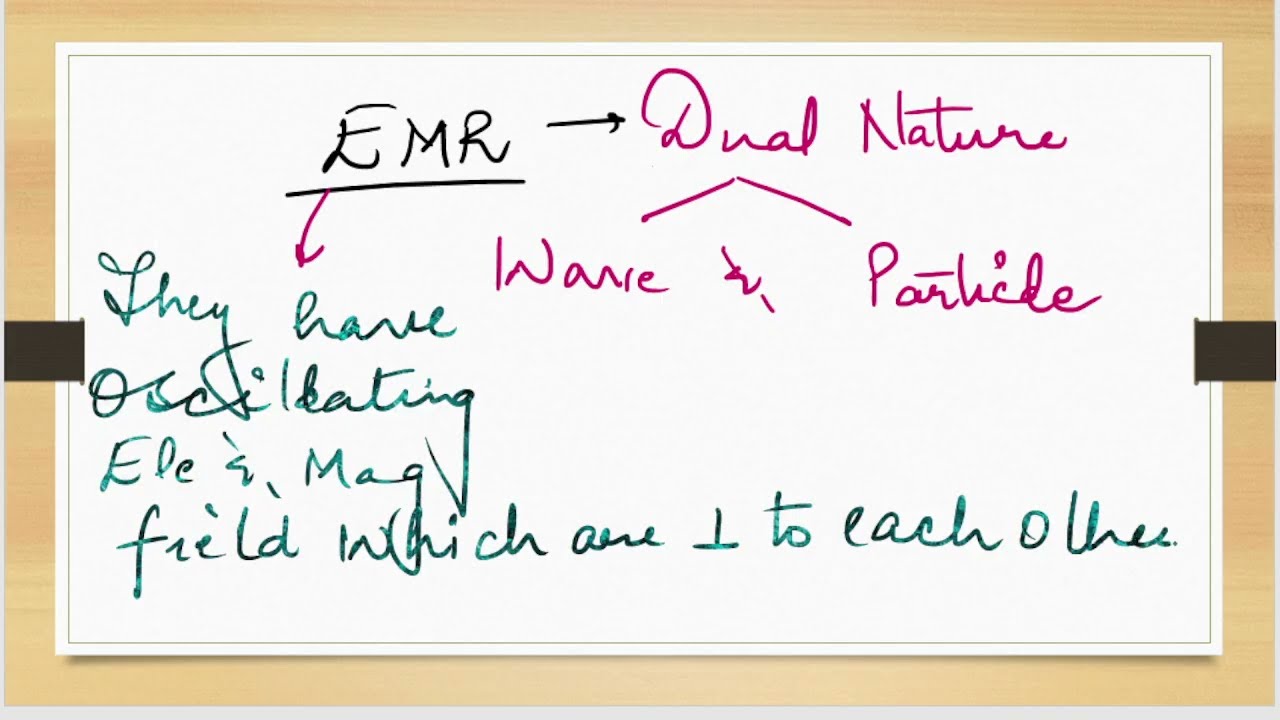 EMR → Dual Nature
Wave & Particle
They have
Oscillating
Ele & Mag
field which are ⊥ to each other.